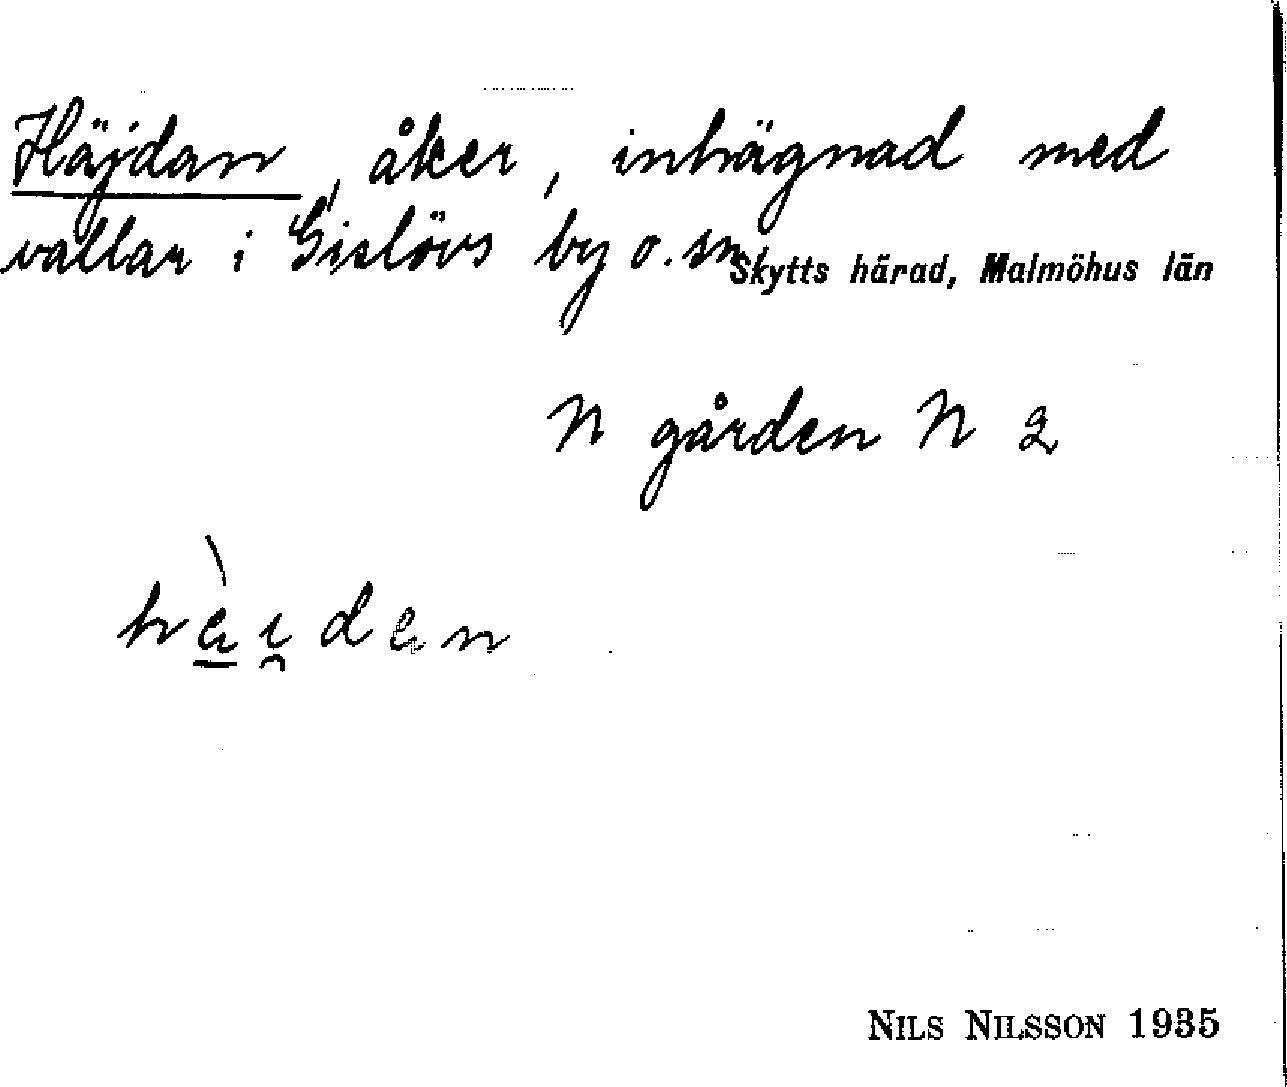 Häjdan, åker, inhägnad med
vallar i Gislövs by o. sn Skytts härad, Malmöhus län
N gården N 2
NILS NILSSON 1935